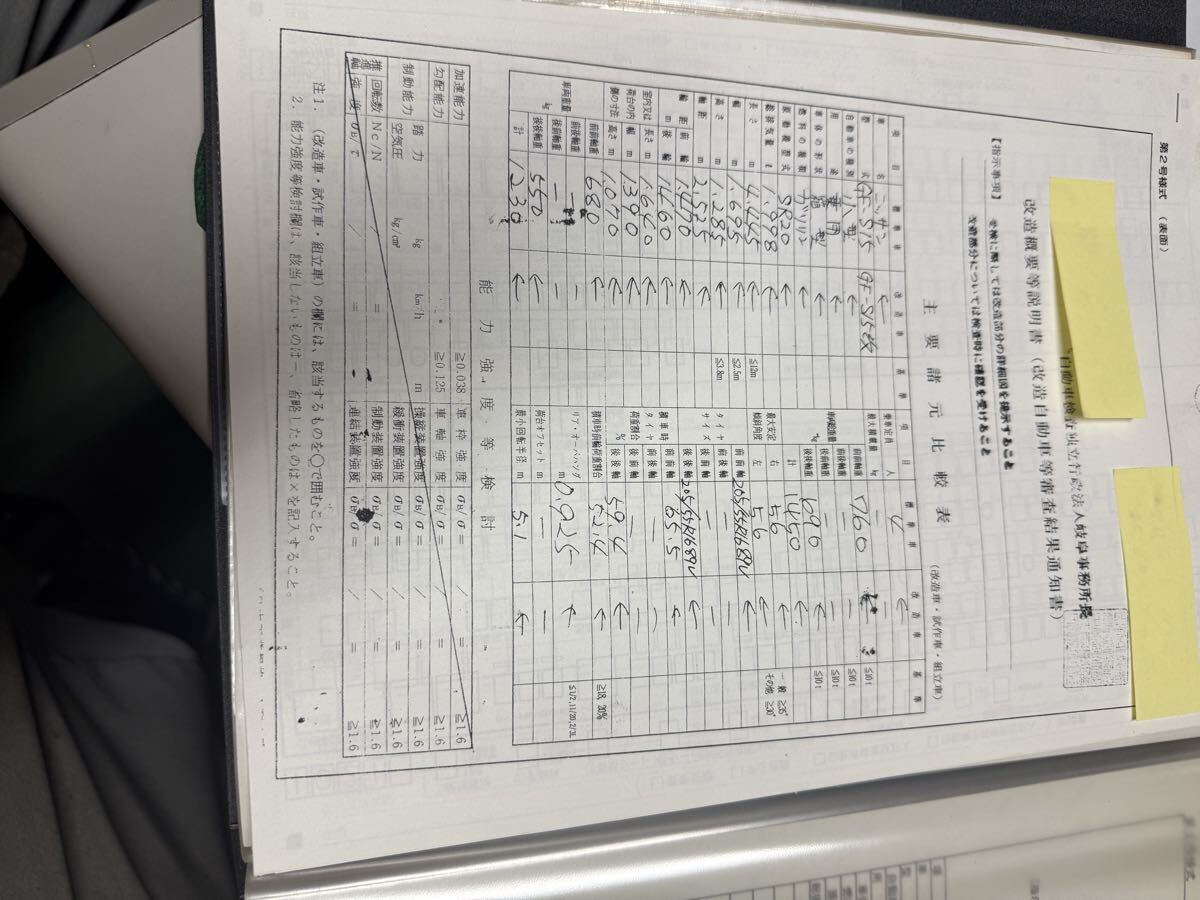 第2号様式 （表面）
自動車検査独立行政法人岐阜事務所長
改造概要等説明書（改造自動車等審査結果通知書）
【指示事項】 受検に際しては改造部分の詳細図を提示すること
改造部分については検査時に確認を受けること
主要諸元比較表 （改造車・試作車・組立車）
項目 標準車 改造車 基準
車名 ニッサン ←
型式 GF-S15 GF-S15改
自動車の種別 小型 ←
用途 乗用 ←
車体の形状 箱型 ←
燃料の種類 ガソリン ←
原動機型式 SR20 ←
総排気量 ℓ 1.998 ←
長さ m 4.445 ← ≦12m
幅 m 1.695 ← ≦2.5m
高さ m 1.285 ← ≦3.8m
軸距 m 2.525 ←
輪距 前輪 m 1.470 ←
後輪 m 1.460 ←
室内又は荷台の内側の寸法 長さ m 1.640 ←
幅 m 1.390 ←
高さ m 1.070 ←
車両重量 kg
前前軸重 680 ←
前後軸重 ― ―
後前軸重 ― ―
後後軸重 550 ←
計 1230 ←
項目 標準車 改造車 基準
乗車定員 人 4 ←
最大積載量 kg ― ―
車両総重量 kg
前前軸重 760 ← ≦10t
前後軸重 ― ― ≦10t
後前軸重 ― ― ≦10t
後後軸重 690 ← ≦10t
計 1450 ←
最大安定傾斜角度 右 56 ← 一般 ≧35°
左 56 ← その他 ≧30°
タイヤサイズ
前前軸 205/55R16 89V ←
前後軸 ― ―
後前軸 ― ―
後後軸 205/55R16 89V ←
積車時タイヤ荷重割合 %
前前軸 65.5 ←
前後軸 ― ―
後前軸 ― ―
後後軸 59.4 ←
積車時前輪荷重割合 52.4 ← ≧18, 20%
リア・オーバハング m 0.925 ← ≦1/2,11/20,2/3L
荷台オフセット m ― ―
最小回転半径 m 5.1 ←
能力強度等検討
加速能力 ≧0.038 車枠強度 σB/σ = / = ≧1.6
勾配能力 km/h ≧0.125 車軸強度 σB/σ = / = ≧1.6
制動能力 踏力 kg m 操縦装置強度 σB/σ = / = ≧1.6
空気圧 kg/cm² 緩衝装置強度 σB/σ = / = ≧1.6
推進軸 回転数 Nc/N / = 制動装置強度 σB/σ = / = ≧1.6
強度 σB/τ / = 連結装置強度 σB/σ = / = ≧1.6
注1. （改造車・試作車・組立車）の欄には、該当するものを○で囲むこと。
2. 能力強度等検討欄は、該当しないものは―、省略したものは×を記入すること。